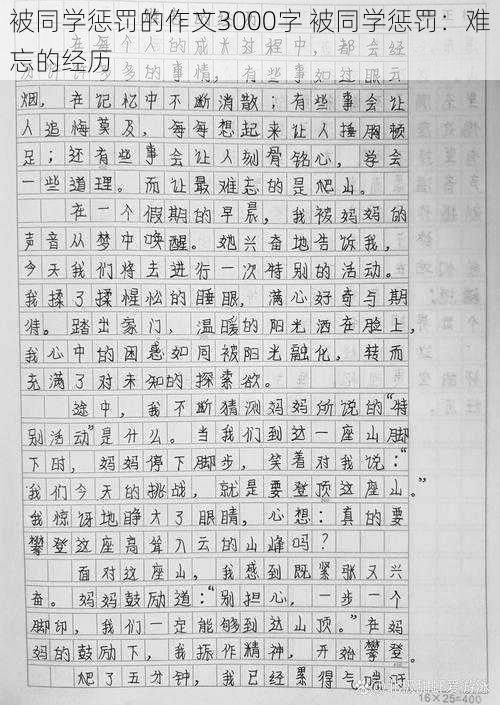 被同学惩罚的作文3000字 被同学惩罚：难
忘的经历
在每个人的成长过程中，都会经
多的事情，有些事如过眼云
烟，在记忆中不断消散；有些事会让
人追悔莫及，每每想起来让人捶胸顿
足；还有些事会让人刻骨铭心，学会
一些道理。而让最难忘的是爬山。
在一个假期的早晨，我被妈妈的
声音从梦中唤醒。她兴奋地告诉我，
今天我们将去进行一次特别的活动。
我揉了揉惺忪的睡眼，满心好奇与期
待。踏出家门，温暖的阳光洒在脸上，
我心中的困惑如同被阳光融化，转而
充满了对未知的探索欲。
途中，我不断猜测妈妈所说的“特
别活动”是什么。当我们到达一座山脚
下时，妈妈停下脚步，笑着对我说：“
我们今天的挑战，就是要登顶这座山。”
我惊讶地睁大了眼睛，心想：真的要
攀登这座高耸入云的山峰吗？
面对这座山，我感到既紧张又兴
奋。妈妈鼓励道：“别担心，一步一个
脚印，我们一定能够到达山顶。”在妈
妈的鼓励下，我振作精神，开始攀登。
爬了五分钟，我已经累得气喘吁
16×25=400